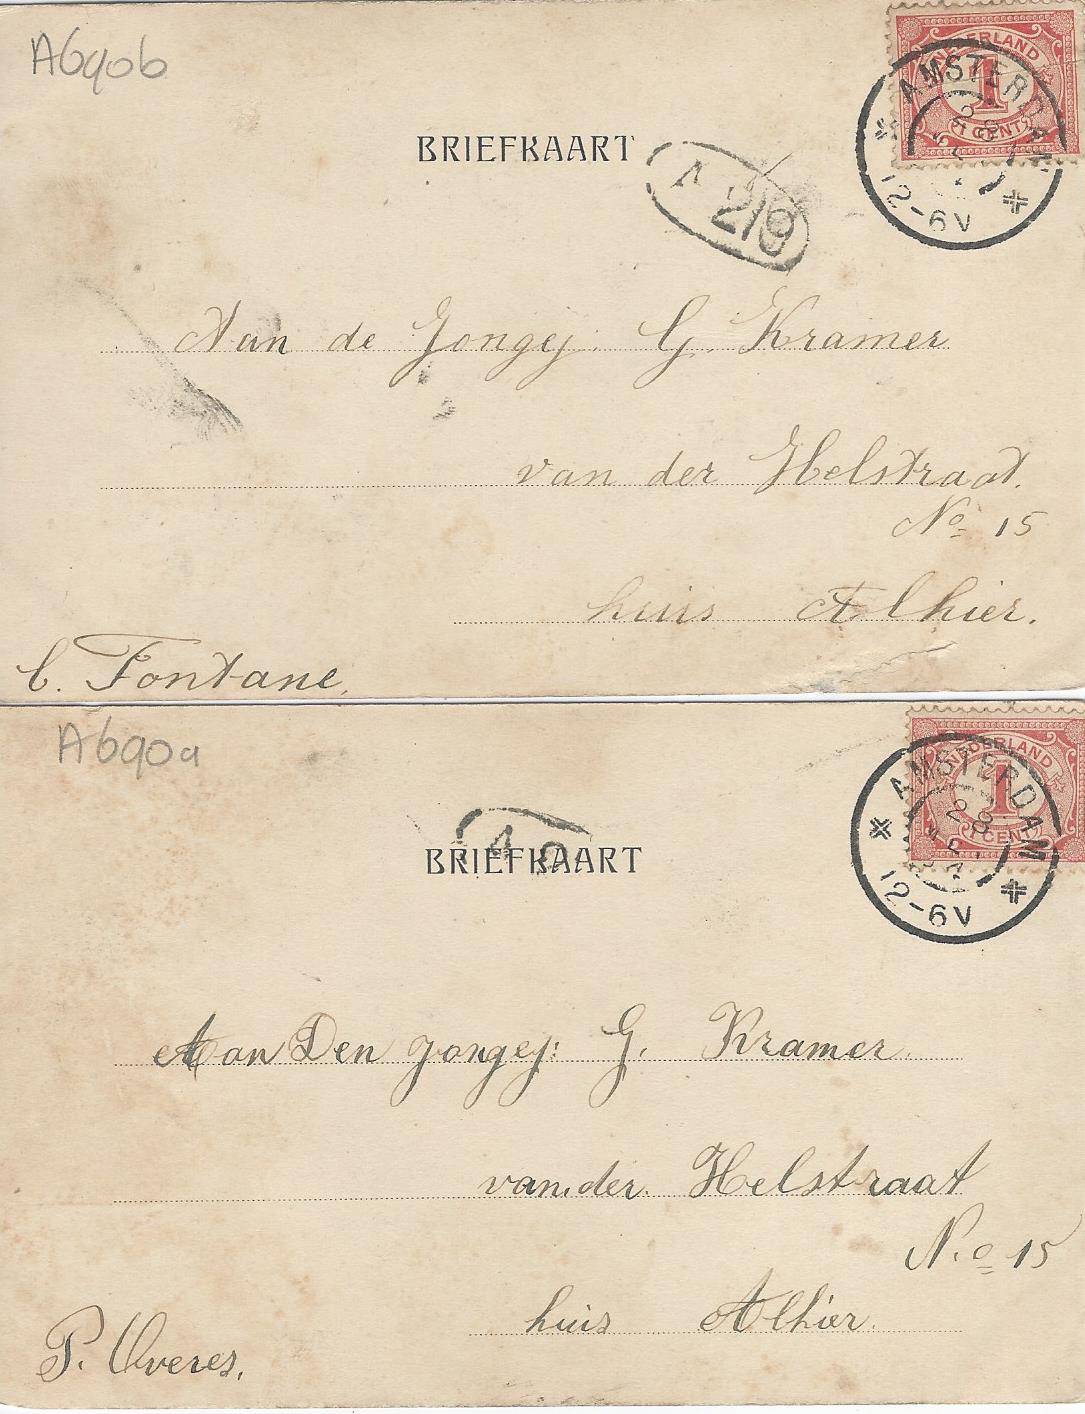 A690b
NEDERLAND
1
1 CENT
AMSTERDAM
28
12-6V
BRIEFKAART
A 2/9
Aan de Jongej. G. Kramer
van der Helstraat.
No 15
huis Alhier.
C. Fontane.
A690a
NEDERLAND
1
1 CENT
AMSTERDAM
28
12-6V
BRIEFKAART
Aan Den jongej: G. Kramer.
van der Helstraat
N.o 15
huis Alhier.
P. Overes.